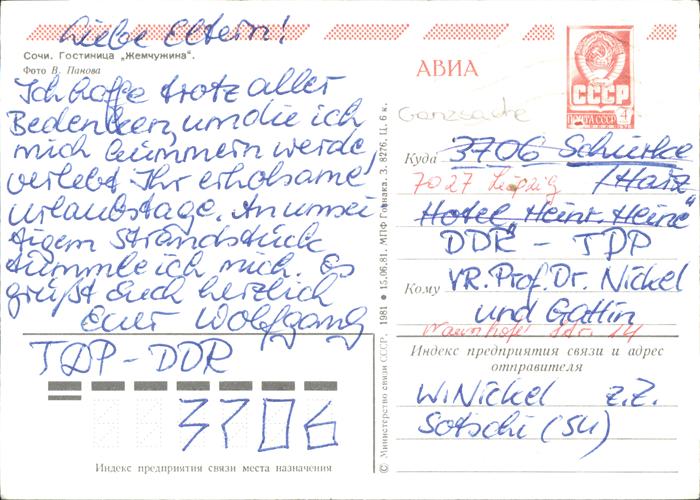 Liebe Eltern!
Сочи. Гостиница „Жемчужина“.
Фото В. Панова
Ich hoffe trotz aller
Bedenken, um die ich
mich kümmern werde,
verlebt Ihr erholsame
Urlaubstage. An unsei
tigem Strandstück
tummle ich mich. Es
grüßt Euch herzlich
Euer Wolfgang
ТДР-DDR
3706
Индекс предприятия связи места назначения
© Министерство связи СССР, 1981 • 15.06.81. МПФ Гознака. З. 8276. Ц. 6 к.
АВИА
СССР
ПОЧТА СССР 4
Ganzsache
Куда 3706 Schierke
7027 Leipzig /Harz
Hotel „Heinr. Heine“
DDR - ТДР
Кому VR. Prof. Dr. Nickel
und Gattin
Str. 14
Индекс предприятия связи и адрес
отправителя
W. Nickel z.Z.
Sotschi (SU)